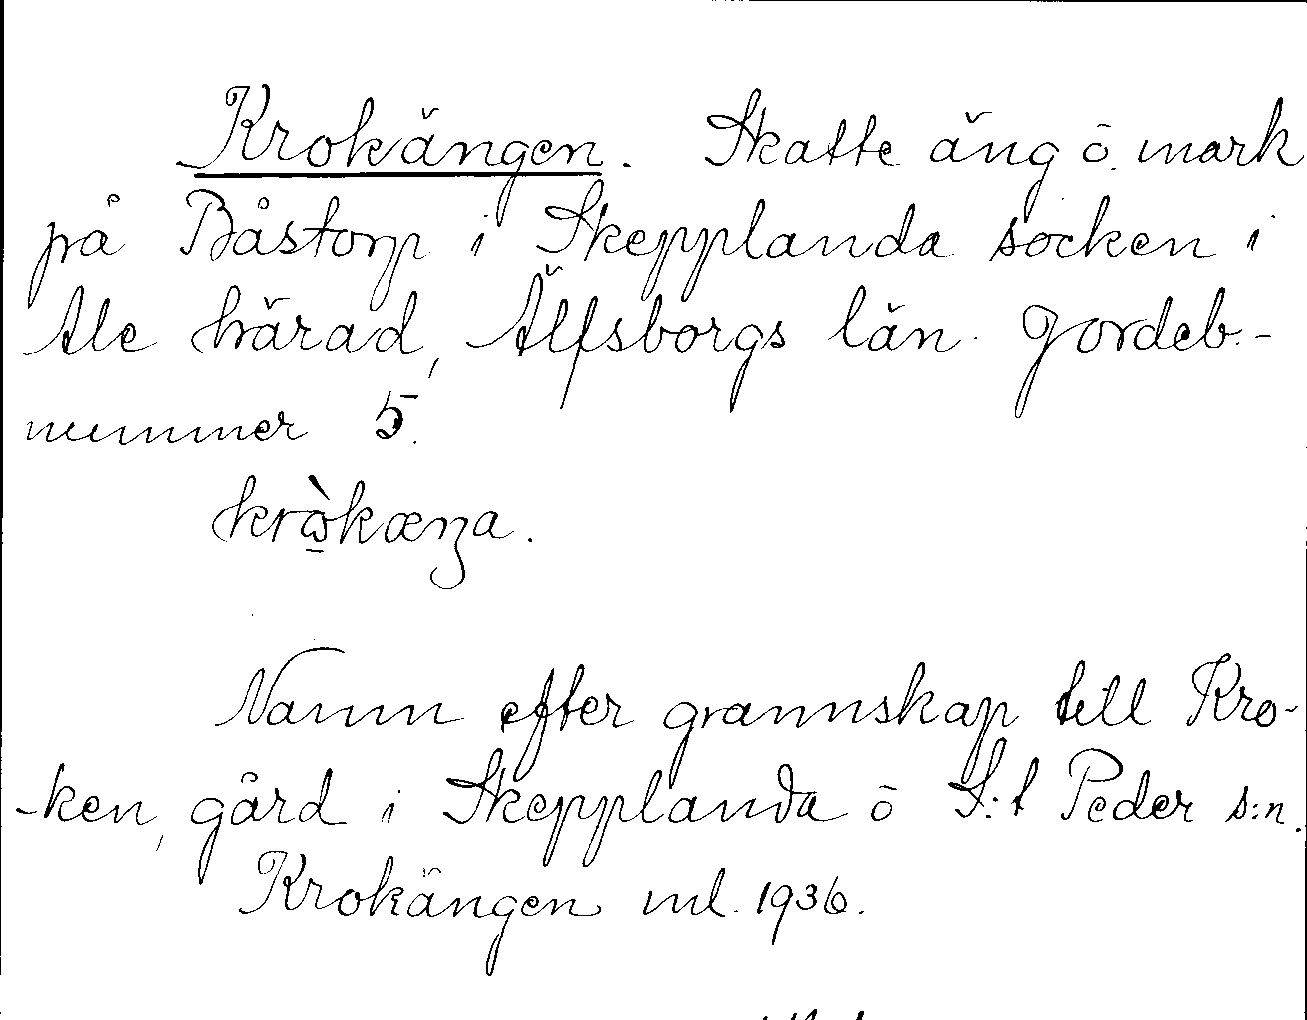 Krokängen. Skatte äng ō. mark
på Båstorp i Skepplanda socken i
Ale härad, Älfsborgs län. Jordeb.-
nummer 5.
krὼ̱kæŋa.
Namn efter grannskap till Kro-
-ken, gård i Skepplanda ō S:t Peder s:n.
Krokängen ml. 1936.